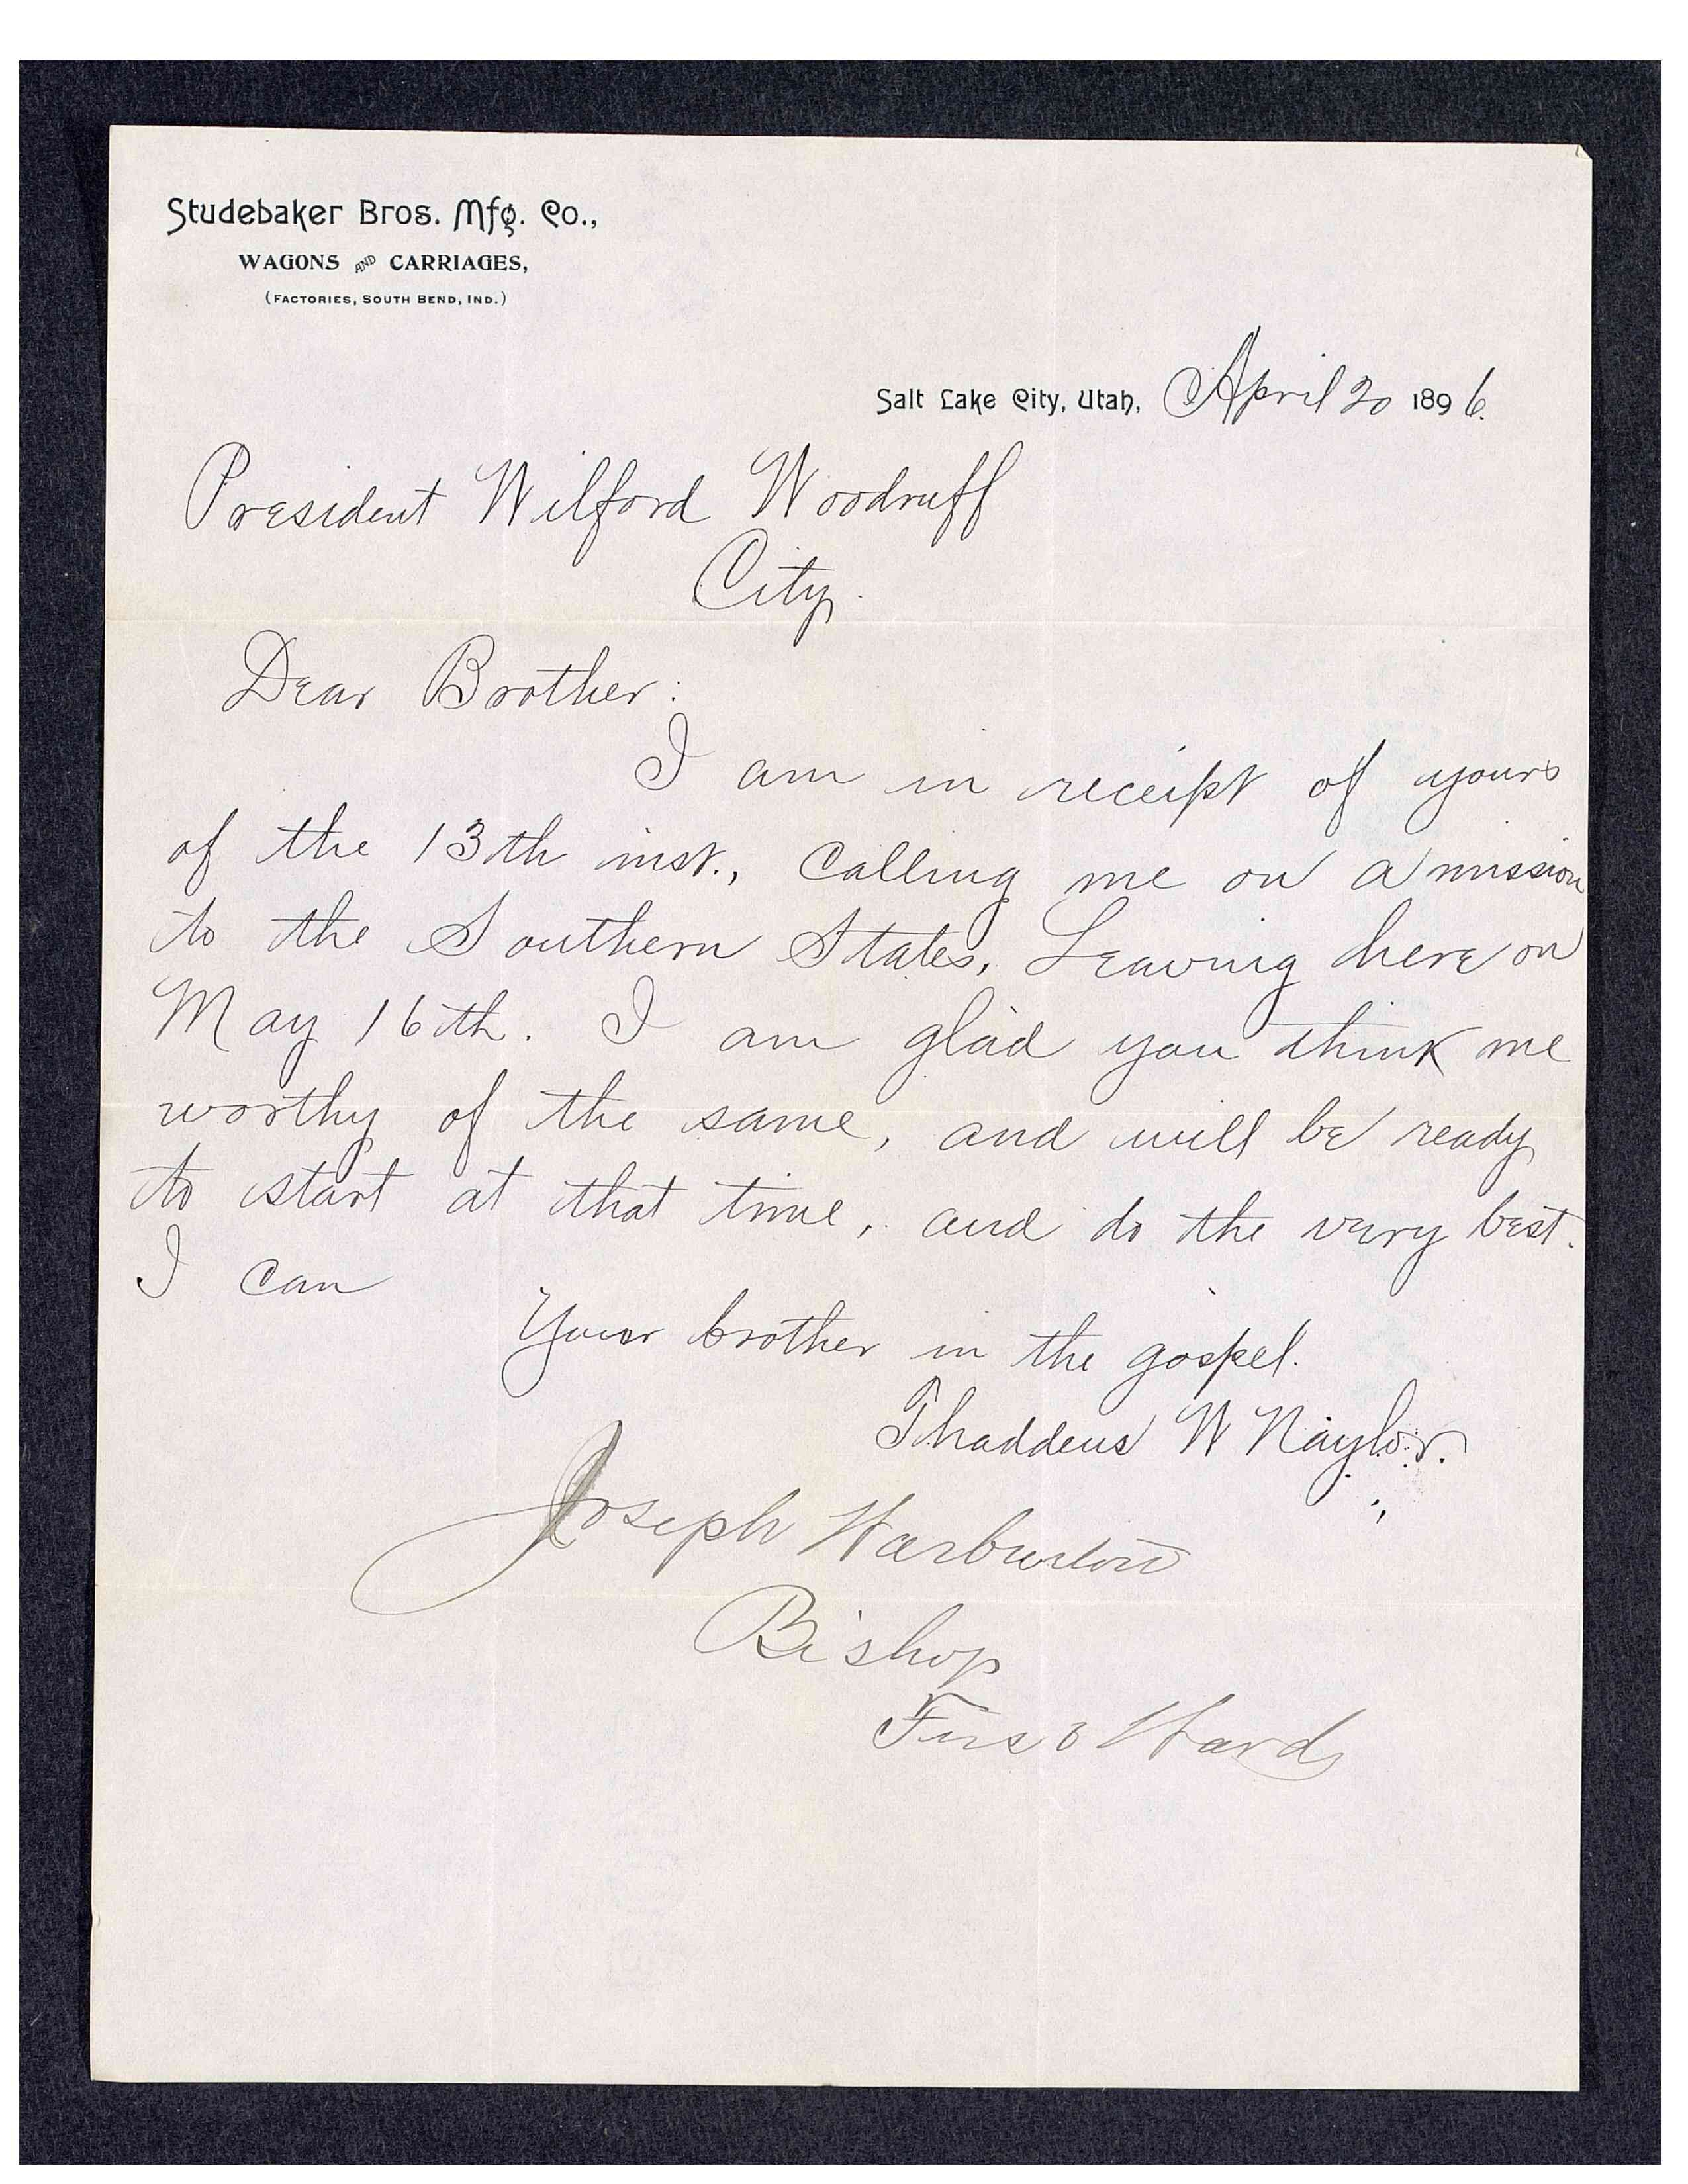 Studebaker Bros. Mfg. Co.,
WAGONS AND CARRIAGES,
(FACTORIES, SOUTH BEND, IND.)
Salt Lake City, Utah, April 20 1896.
President Wilford Woodruff
City.
Dear Brother:
I am in receipt of yours
of the 13th inst., Calling me on a mission
to the Southern States, Leaving here on
May 16th. I am glad you think me
worthy of the same, and will be ready
to start at that time, and do the very best.
I can
Your brother in the gospel.
Thaddeus W Naylor.
Joseph Warburton
Bishop
First Ward